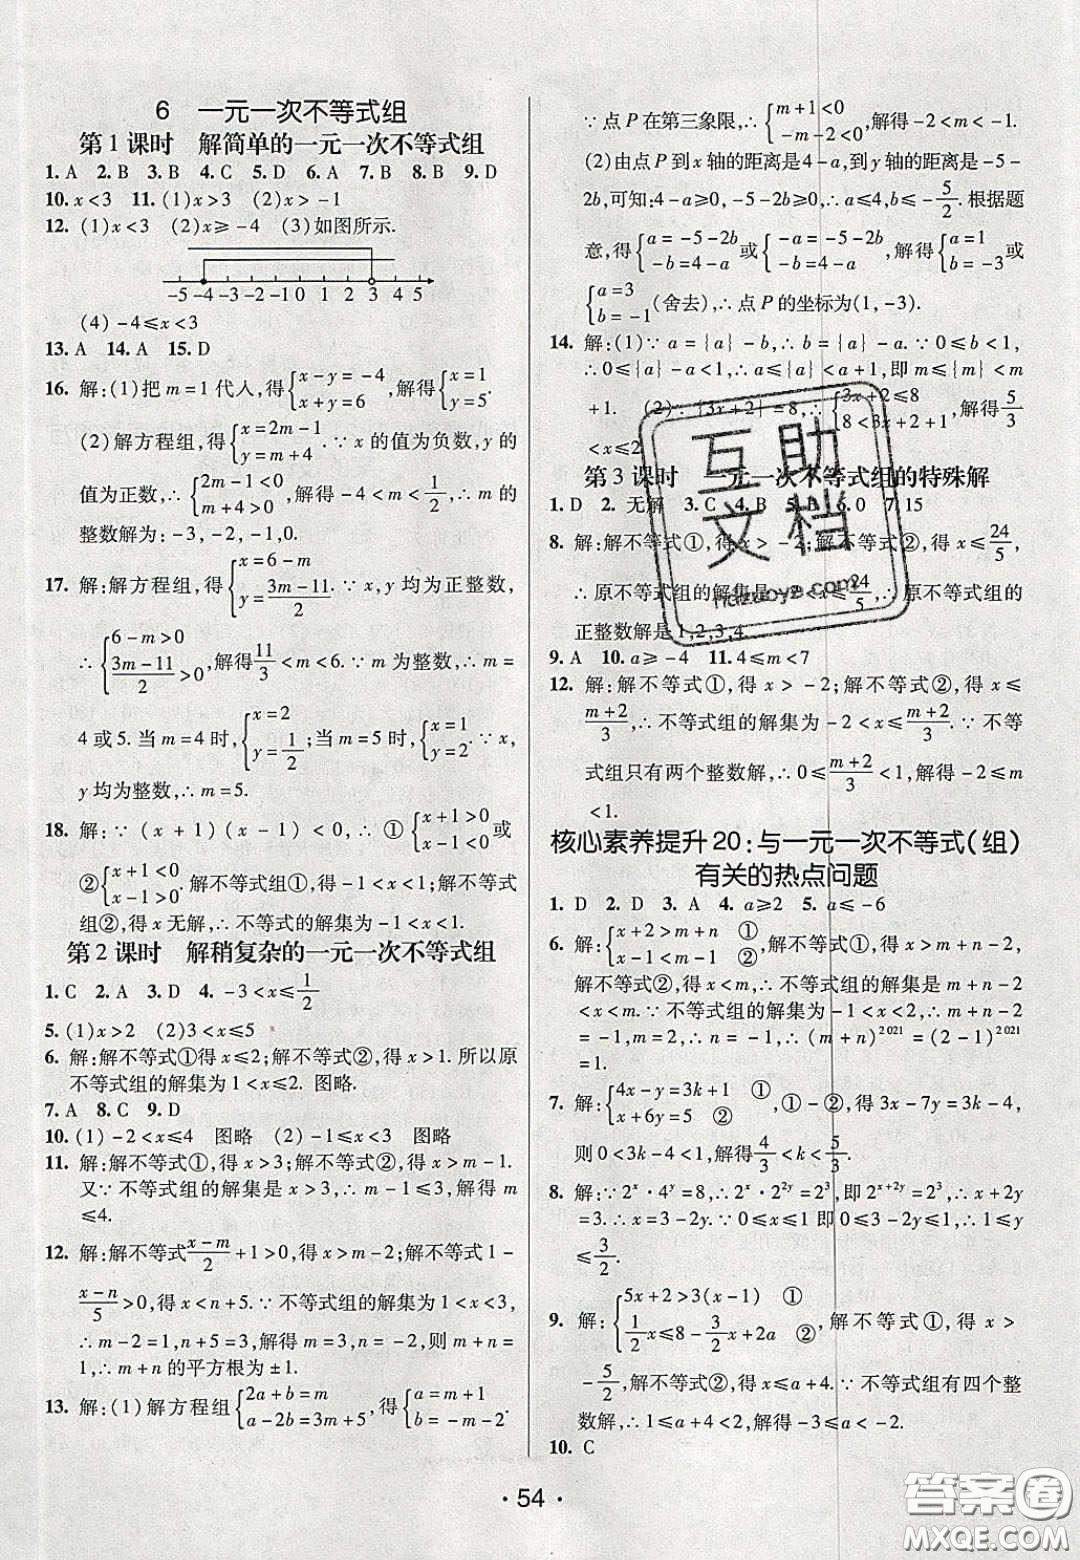 6 一元一次不等式组
第1课时 解简单的一元一次不等式组
1. A 2. B 3. B 4. C 5. D 6. A 7. B 8. B 9. D
10. x<3 11. (1)x>3 (2)x>-1
12. (1)x<3 (2)x≥-4 (3)如图所示.
-5 -4 -3 -2 -1 0 1 2 3 4 5
(4)-4≤x<3
13. A 14. A 15. D
16. 解:(1)把m=1代人,得{x-y=-4, x+y=6,解得{x=1, y=5.
(2)解方程组,得{x=2m-1, y=m+4.∵x的值为负数,y的
值为正数,∴{2m-1<0, m+4>0,解得-4<m<1/2,∴m的
整数解为:-3,-2,-1,0.
17. 解:解方程组,得{x=6-m, y=(3m-11)/2.∵x,y均为正整数,
∴{6-m>0, (3m-11)/2>0,解得11/3<m<6.∵m为整数,∴m=
4或5.当m=4时,{x=2, y=1/2;当m=5时,{x=1, y=2.∵x,
y均为整数,∴m=5.
18. 解:∵(x+1)(x-1)<0,∴①{x+1>0, x-1<0或
②{x+1<0, x-1>0.解不等式组①,得-1<x<1,解不等式
组②,得x无解,∴不等式的解集为-1<x<1.
第2课时 解稍复杂的一元一次不等式组
1. C 2. A 3. D 4. -3<x≤1/2
5. (1)x>2 (2)3<x≤5
6. 解:解不等式①得x≤2;解不等式②,得x>1.所以原
不等式组的解集为1<x≤2. 图略.
7. A 8. C 9. D
10. (1)-2<x≤4 图略 (2)-1≤x<3 图略
11. 解:解不等式①,得x>3;解不等式②,得x>m-1.
又∵不等式组的解集是x>3,∴m-1≤3,解得m
≤4.
12. 解:解不等式(x-m)/2+1>0,得x>m-2;解不等式1-
(x-n)/5>0,得x<n+5.∵不等式组的解集为1<x<3,
∴m-2=1,n+5=3,解得m=3,n=-2,则m+n=
1,∴m+n的平方根为±1.
13. 解:(1)解方程组{2a+b=m, a-2b=3m+5,得{a=m+1, b=-m-2.
∵点P在第三象限,∴{m+1<0, -m-2<0,解得-2<m<-1.
(2)由点P到x轴的距离是4-a,到y轴的距离是-5-
2b,可知:4-a≥0,-5-2b≥0,∴a≤4,b≤-5/2.根据题
意,得{a=-5-2b, -b=4-a或{-a=-5-2b, -b=4-a,解得{a=1, b=-3或
{a=3, b=-1(舍去),∴点P的坐标为(1,-3).
14. 解:(1)∵a={a}-b,∴b={a}-a.∵0≤b<1,
∴0≤{a}-a<1,∴a≤{a}<a+1,即m≤{m}<m
+1. (2)∵{3x+2}=8,∴{3x+2≤8, 8<3x+2+1,解得5/3
<x≤2
第3课时 一元一次不等式组的特殊解
1. D 2. 无解 3. C 4. B 5. B 6. 0 7. 15
8. 解:解不等式①,得x>-2;解不等式②,得x≤24/5,
∴原不等式组的解集是-2<x≤24/5,∴原不等式组的
正整数解是1,2,3,4.
9. A 10. a≥-4 11. 4≤m<7
12. 解:解不等式①,得x>-2;解不等式②,得x≤
(m+2)/3,∴不等式组的解集为-2<x≤(m+2)/3.∵不等
式组只有两个整数解,∴0≤(m+2)/3<1,解得-2≤m
<1.
核心素养提升20:与一元一次不等式(组)
有关的热点问题
1. D 2. D 3. A 4. a≥2 5. a≤-6
6. 解:{x+2>m+n ①, x-1<m-1 ②,解不等式①,得x>m+n-2,
解不等式②,得x<m,∴不等式组的解集是m+n-2
<x<m.∵不等式组的解集为-1<x<2,∴m+n-2
=-1,m=2,∴n=-1,∴(m+n)²⁰²¹=(2-1)²⁰²¹
=1.
7. 解:{4x-y=3k+1 ①, x+6y=5 ②,①-②,得3x-7y=3k-4,
则0<3k-4<1,解得4/3<k<5/3.
8. 解:∵2ˣ·4ʸ=8,∴2ˣ·2²ʸ=2³,即2ˣ⁺²ʸ=2³,∴x+2y
=3.∴x=3-2y.∵0≤x≤1即0≤3-2y≤1,∴1≤y
≤3/2.
9. 解:{5x+2>3(x-1) ①, 1/2x≤8-3/2x+2a ②,解不等式①,得x>
-5/2,解不等式②,得x≤a+4.∵不等式组有四个整
数解,∴1≤a+4<2,解得-3≤a<-2.
10. C
· 54 ·
互助
文档
hdzuoye.com
答案圈
MXQE.COM